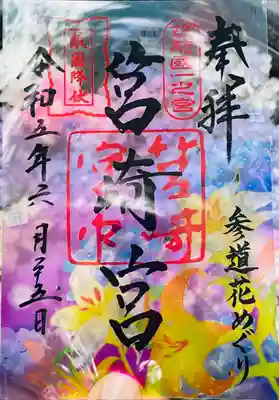 奉拝
筑前国一之宮
参道花めぐり
筥崎宮
敵國降伏
令和五年六月廿五日